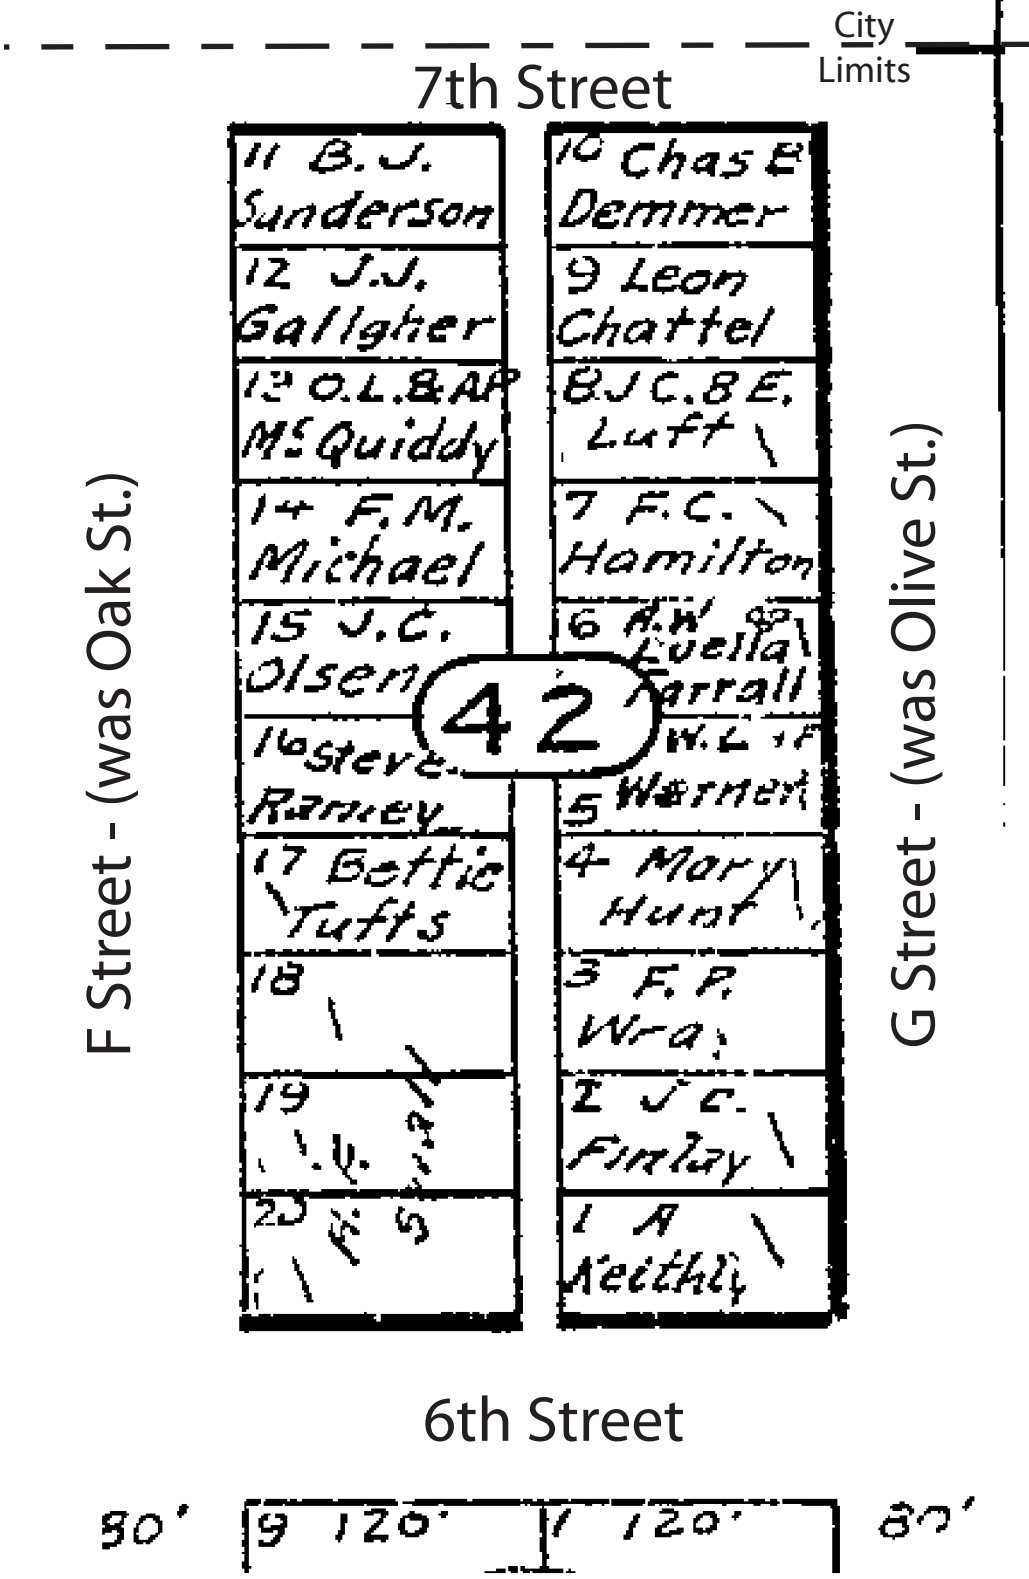 City
Limits
7th Street
11 B. J.
Sunderson
12 J.J.
Gallgher
13 O.L.&AP
Mc Quiddy
14 F. M.
Michael
15 J. C.
Olsen
16 Steve
Ramey
17 Bettie
Tufts
18
19
20
H. F.
10 Chas E
Demmer
9 Leon
Chattel
8 J C. & E.
Luft
7 F. C.
Hamilton
6 A. W &
Luella
Farrall
42
W. L + F
5 Warner
4 Mary
Hunt
3 F. P.
Wra
2 J C.
Finlay
1 A
Keithly
F Street - (was Oak St.)
G Street - (was Olive St.)
6th Street
80' 9 120' 1 120' 80'